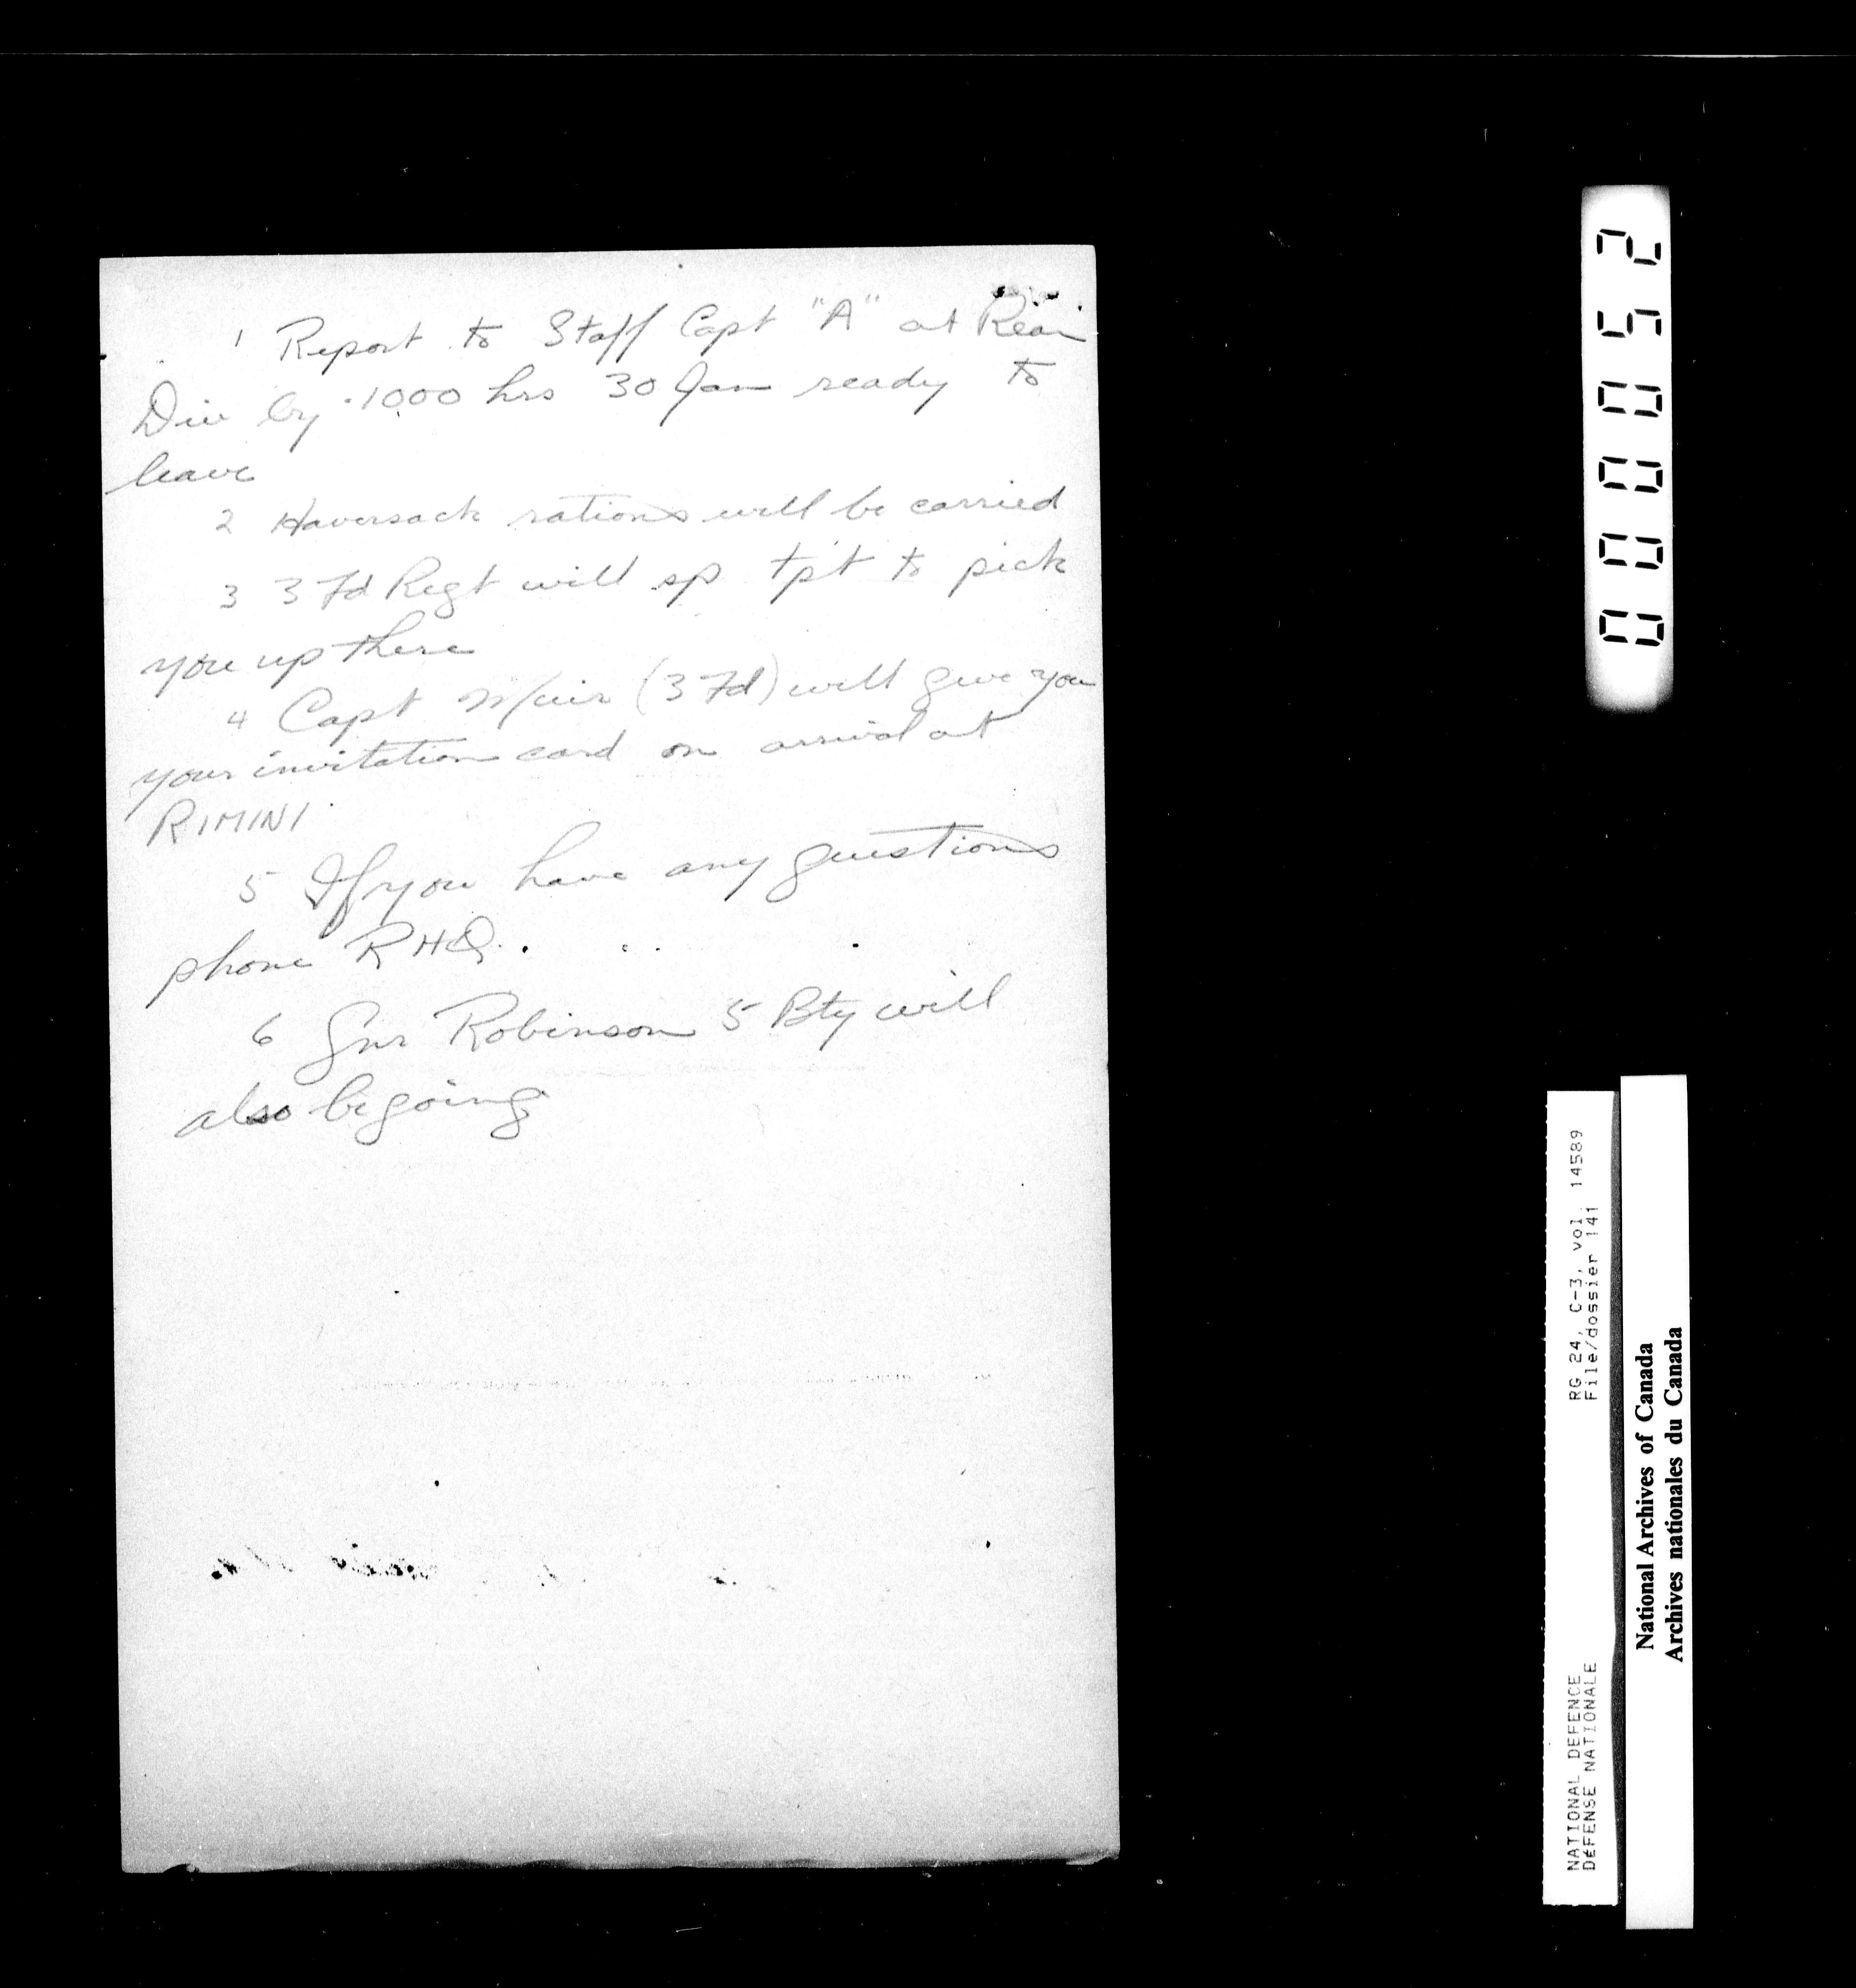 1 Report to Staff Capt "A" at Rear
Div by 1000 hrs 30 Jan ready to
leave
2 Haversack rations will be carried
3 3 Fd Regt will sp tpt to pick
you up there
4 Capt Muir (3 Fd) will give you
your invitation card on arrival at
RIMINI
5 If you have any questions
phone RHQ.
6 Gnr Robinson 5 Bty will
also be going
000052
RG 24, C-3, vol. 14589
File/dossier 141
NATIONAL DEFENCE
DEFENSE NATIONALE
National Archives of Canada
Archives nationales du Canada